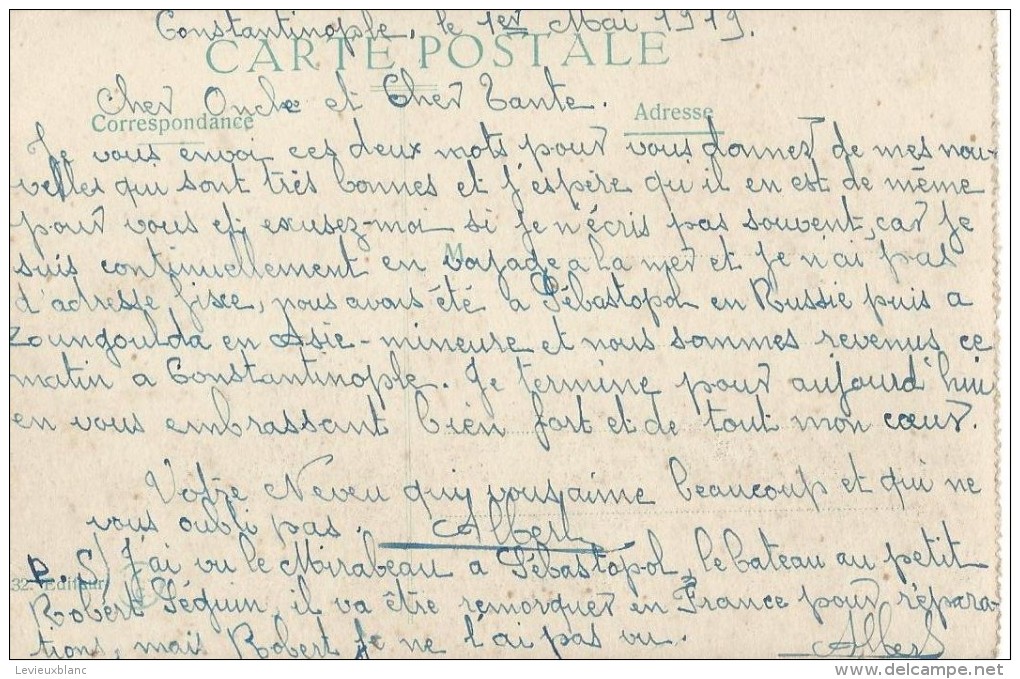 Constantinople, le 1er Mai 1919.
CARTE POSTALE
Cher Oncle et Cher Tante.
Correspondance
Adresse
Je vous envoi ces deux mots pour vous donner de mes nou-
velles qui sont très bonnes et j'espère qu'il en est de même
pour vous et excusez-moi si je n'écris pas souvent, car je
M
suis continuellement en voyage a la mer et je n'ai pas
d'adresse fixe, nous avons été a Sébastopol en Russie puis a
Zoungoulda en Asie-mineure et nous sommes revenus ce
matin a Constantinople. Je termine pour aujourd'hui
en vous embrassant bien fort et de tout mon cœur.
Votre Neveu qui vous aime beaucoup et qui ne
vous oubli pas. Albert
P.S/ J'ai vu le Mirabeau a Sébastopol, le bateau au petit
32. Editeur
Robert Séguin, il va être remorquer en France pour répara-
tions, mais Robert je ne l'ai pas vu. Albert
Levieuxblanc
www.delcampe.net